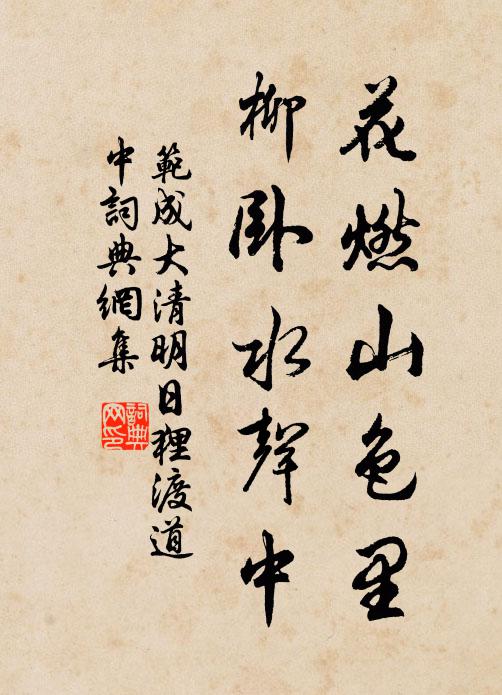 花燃山色里
柳卧水聲中
範成大清明日狸渡道
中詞典網集
詞典
网印